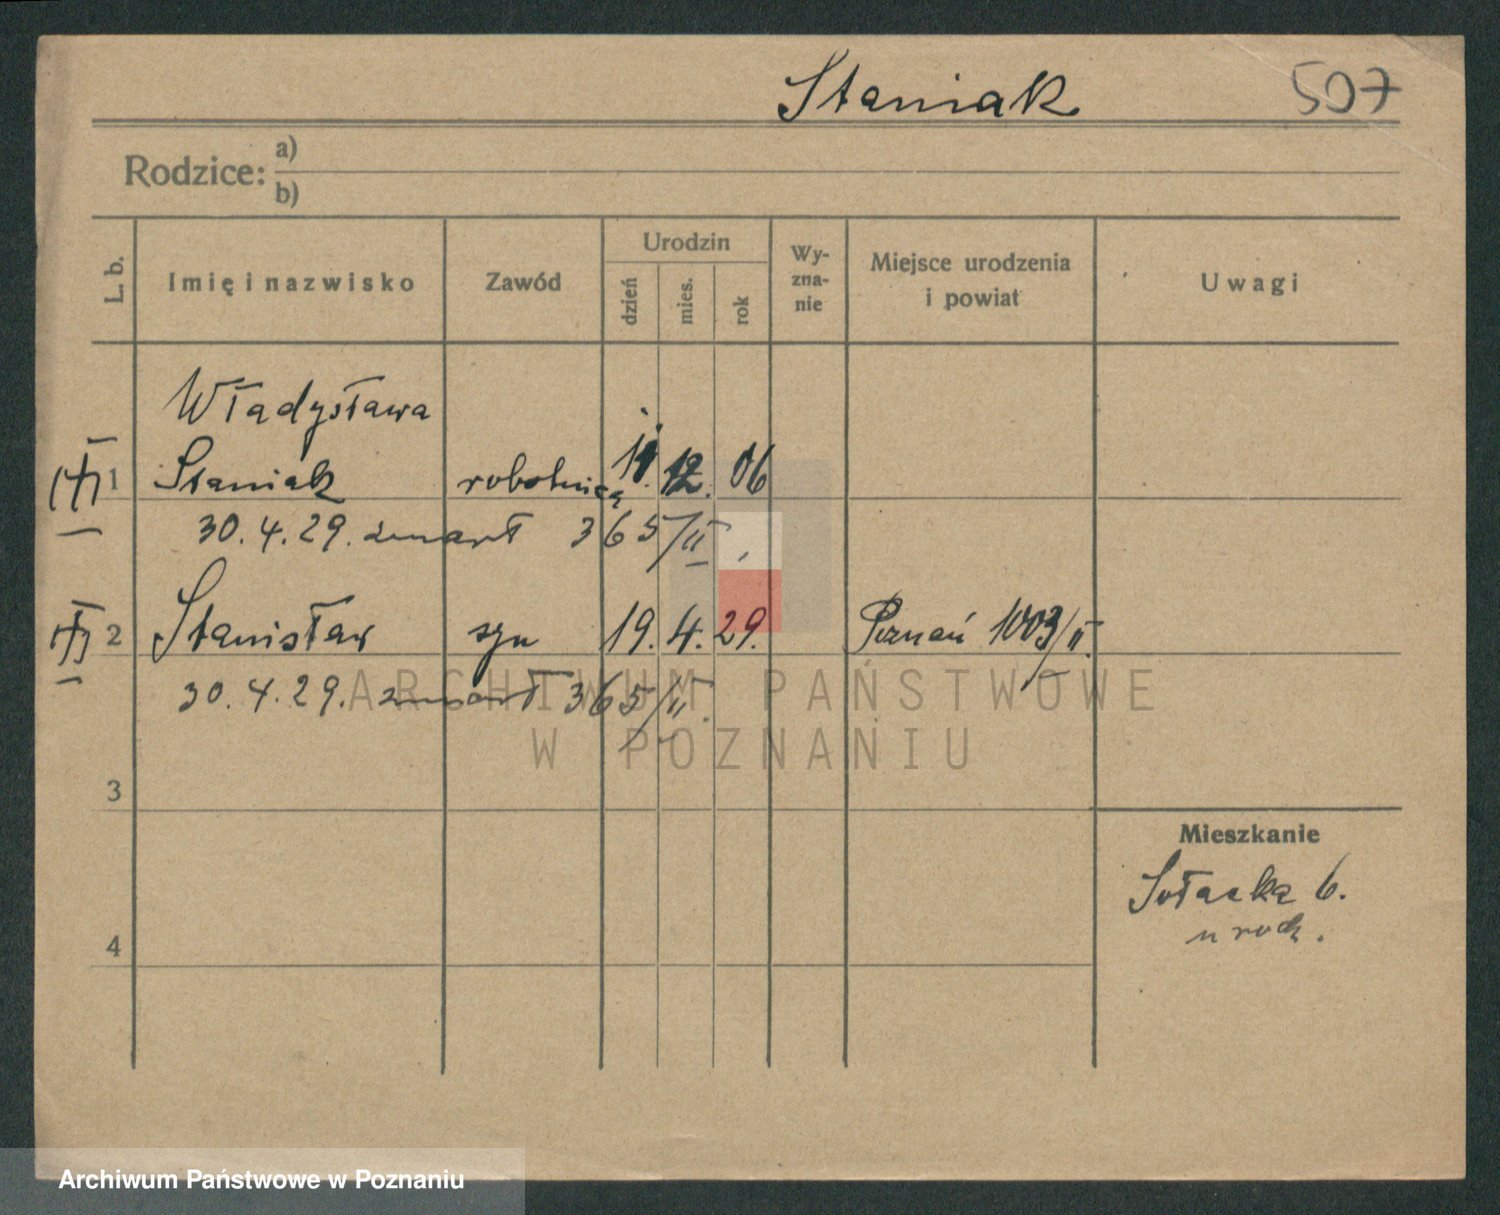 Staniak 507
Rodzice: a)
b)
L. b. Imię i nazwisko Zawód Urodzin dzień mies. rok Wy-zna-nie Miejsce urodzenia i powiat Uwagi
Władysława
1 Staniak robotnica 11. 12. 06
30.4.29. zmarł 365/II
2 Stanisław syn 19. 4. 29. Poznań 1003/II.
30.4.29. zmarł 365/II.
ARCHIWUM PAŃSTWOWE
W POZNANIU
3
Mieszkanie
Sołacka 6.
u rodz.
4
Archiwum Państwowe w Poznaniu